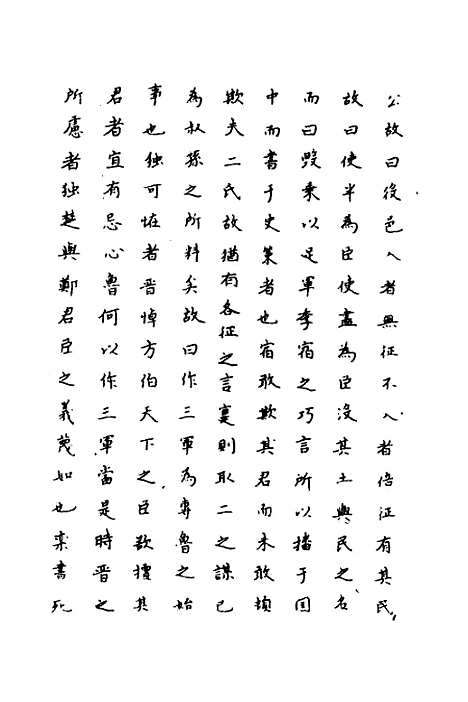 公故曰役邑入者無征不入者倍征有其民
故曰使半為臣使盡為臣沒其土與民之名
而曰毀乘以足軍季宿之巧言所以播于国
中而書于史策者也宿敢欺其君而未敢頓
欺夫二氏故猶有各征之言襄則取二之謀已
為叔孫之所料矣故曰作三軍為專魯之始
事也独可恠者晋悼方伯天下之臣欲擅其
君者宜有忌心魯何以作三軍當是時晋之
所慮者独楚與鄭君臣之義蔑如也栾書死